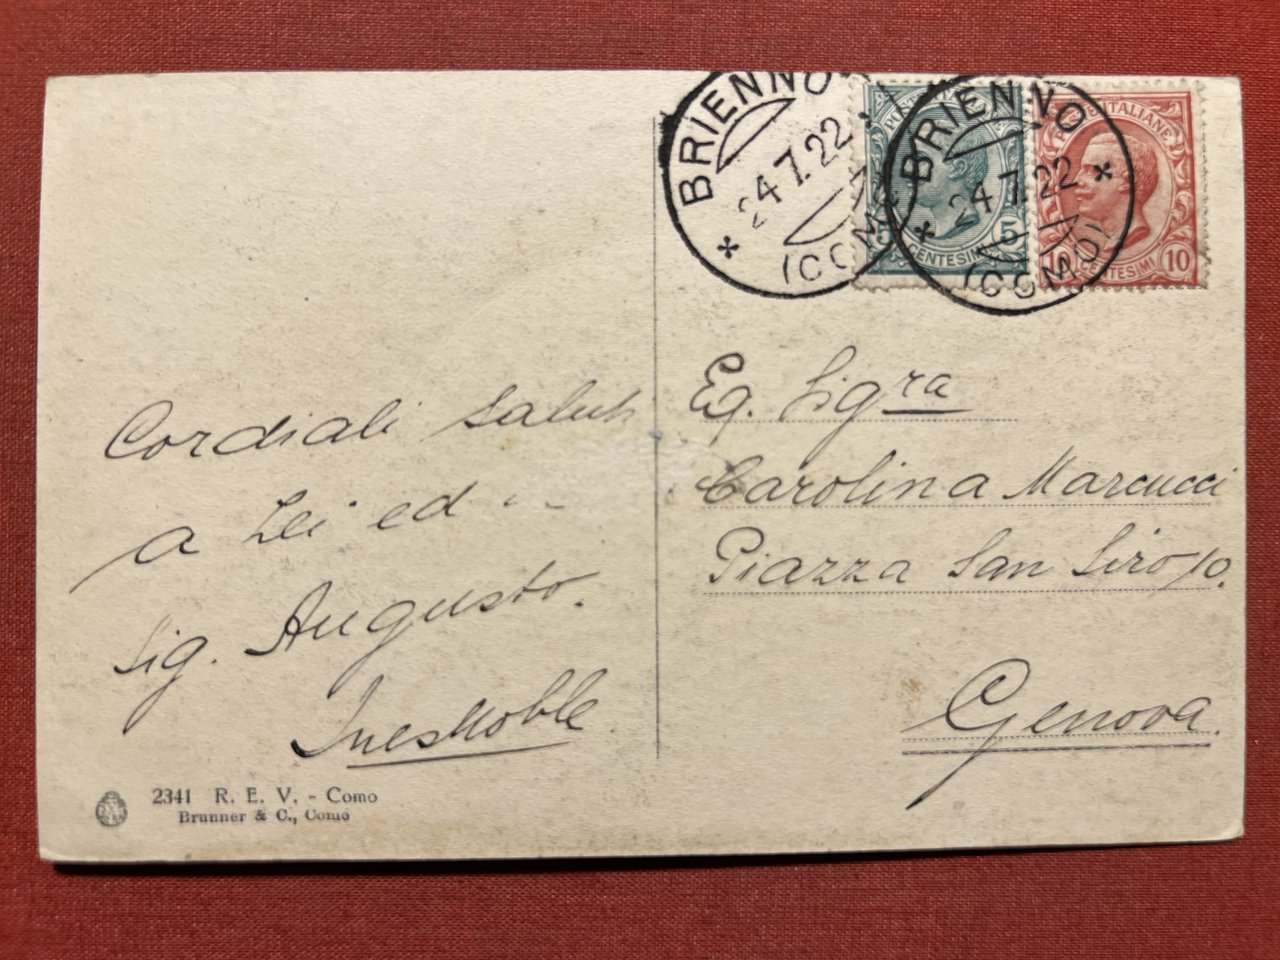 BRIENNO
24.7.22
(COMO)
POSTE ITALIANE
5
CENTESIMI
BRIENNO
24.7.22
(COMO)
POSTE ITALIANE
10 CENTESIMI 10
Cordiali saluti
a Lei ed
Sig. Augusto.
Ines Noble
Eg. Sigra
Carolina Marcucci
Piazza San Siro
Genova.
2341 R. E. V. - Como
Brunner & C., Como